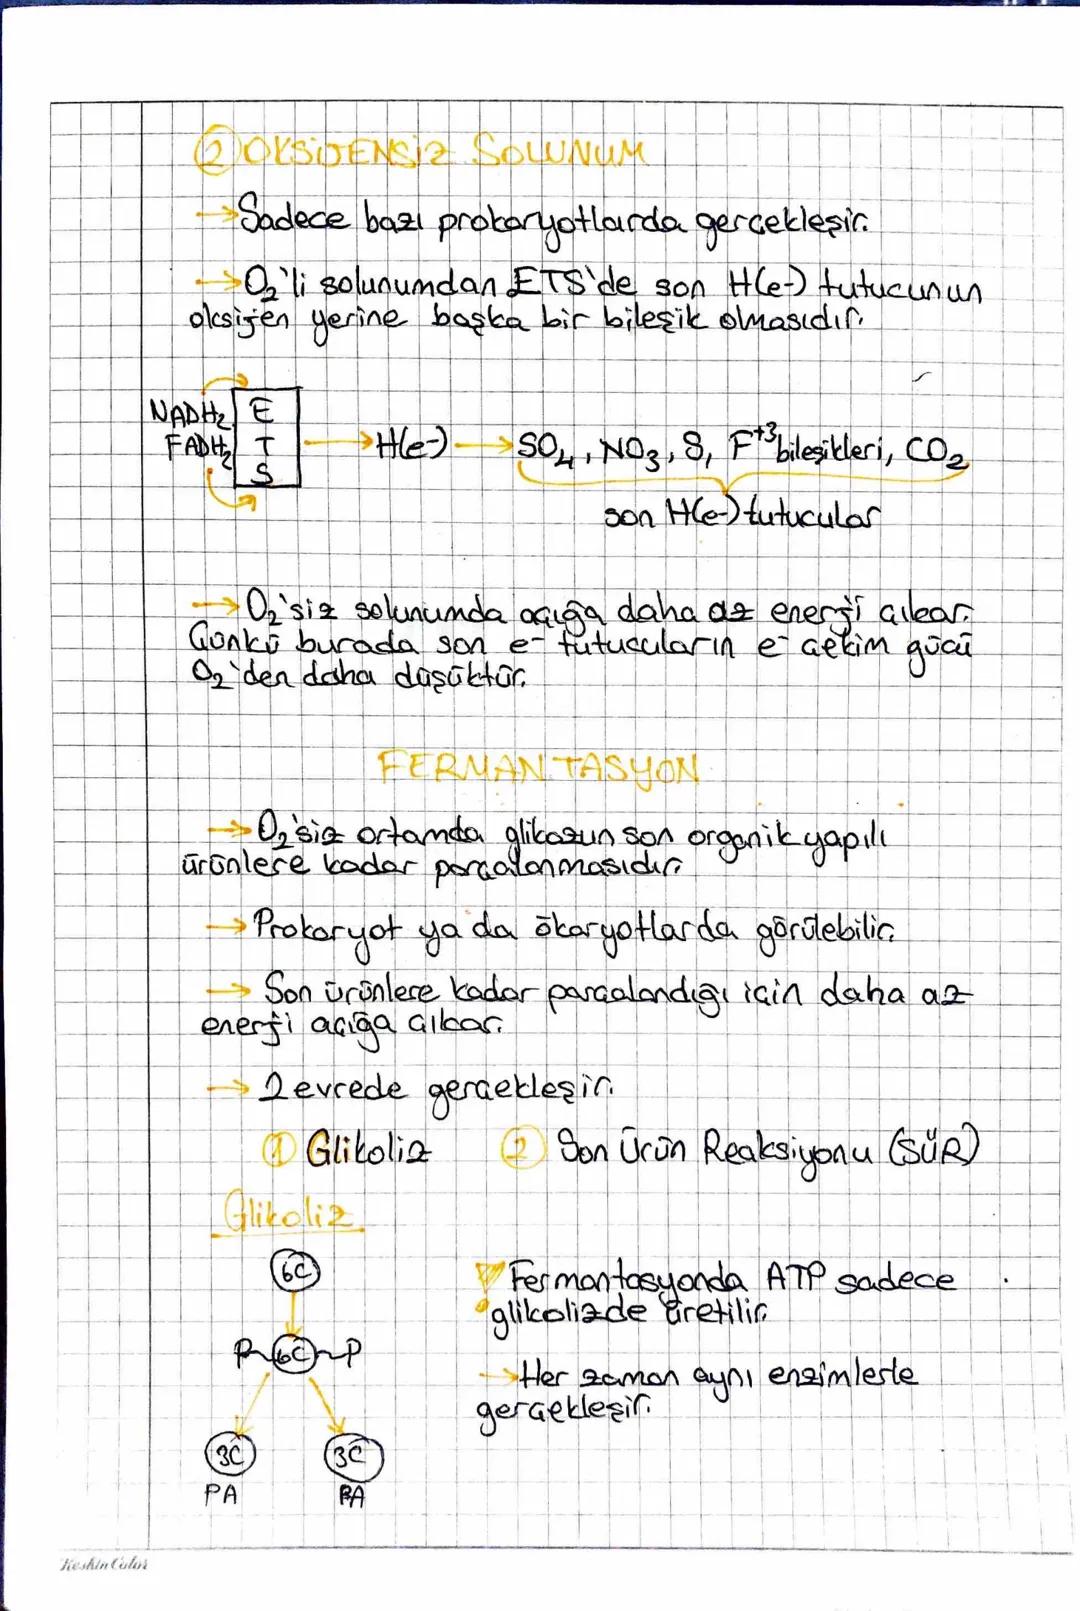 ② OKSİJENSİZ SOLUNUM
→ Sadece bazı prokaryotlarda gerçekleşir.
→ O₂'li solunumdan ETS'de son H(e-) tutucunun
oksijen yerine başka bir bileşik olmasıdır.
NADH₂
FADH₂
E
T
S
→ H(e-) → SO₄, NO₃, S, F⁺³ bileşikleri, CO₂
son H(e-) tutucular
→ O₂'siz solunumda açığa daha az enerji çıkar.
Çünkü burada son e- tutucuların e- çekim gücü
O₂'den daha düşüktür.
FERMANTASYON
→ O₂'siz ortamda glikozun son organik yapılı
ürünlere kadar parçalanmasıdır.
→ Prokaryot ya da ökaryotlarda görülebilir.
→ Son ürünlere kadar parçalandığı için daha az
enerji açığa çıkar.
→ 2 evrede gerçekleşir.
① Glikoliz ② Son Ürün Reaksiyonu (SÜR)
Glikoliz
6C
P~6C~P
3C 3C
PA PA
Fermantasyonda ATP sadece
glikolizde üretilir.
→ Her zaman aynı enzimlerle
gerçekleşir.
Keskin Color